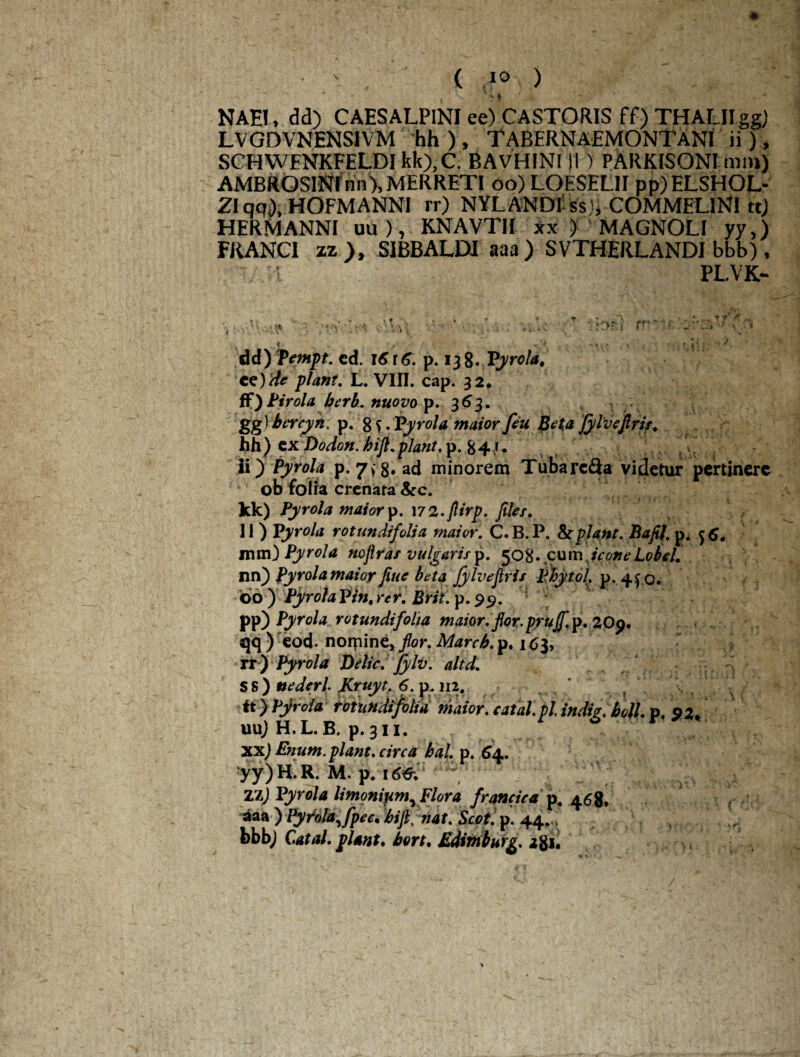 ( 10 )
NAEI, dd) CAESALPINI ee) CASTORIS ff) THALII gg)
LVGDVNENSIVM hh ), TABERNAEMONTANI ii ),
SCHWENKFELDI kk), C. BAVHINI ll ) PARKISONI mm)
AMBROSINI nn), MERRETI oo) LOESELII pp) ELSHOL-
ZI qq), HOFMANNI rr) NYLANDI ss), COMMELINI tt)
HERMANNI uu ), KNAVTII xx ) MAGNOLI yy,)
FRANCI zz ), SIBBALDI aaa ) SVTHERLANDI bbb),
PLVK-
dd) Tempt. ed. 1616. p. 138. Pyrola.
ee) de plant. L. VIII. cap. 32.
ff) Pirola herb. nuovo p. 363.
gg) hercyn. p. 85. Pyrola maior seu Beta sylvestris.
hh) ex Dodon. hist. plant. p. 841.
ii ) Pyrola p. 758. ad minorem Tubarecta videtur pertinere
ob folia crenata &c.
kk) Pyrola maior p. 172. stirp. siles.
ll ) Pyrola rotundifolia maior. C. B. P. & plant. Basil. p. 56.
mm) Pyrola nostras vulgaris p. 508. cum icone Lobel.
nn) Pyrola maior siue beta sylvestris Phytol. p. 450.
oo ) Pyrola Pin. rer. Brit. p. 99.
pp) Pyrola rotundifolia maior. flor. pruss. p. 209.
qq ) eod. nomine, flor. March. p. 163,
rr ) Pyrola Delic. sylv. altd.
ss ) nederl. Kruyt. 6. p. 112.
tt ) Pyrola rotundifolia maior. catal. pl. indig. holl. p. 92.
uu) H. L. B. p. 311.
xx) Enum. plant. circa hal. p. 64.
yy) H. R. M. p. 166.
zz) Pyrola limonium, Flora francica p. 468.
aaa ) Pyrola, spec. hist. nat. Scot. p. 44.
bbb) Catal. plant. hort. Edimburg. 281.